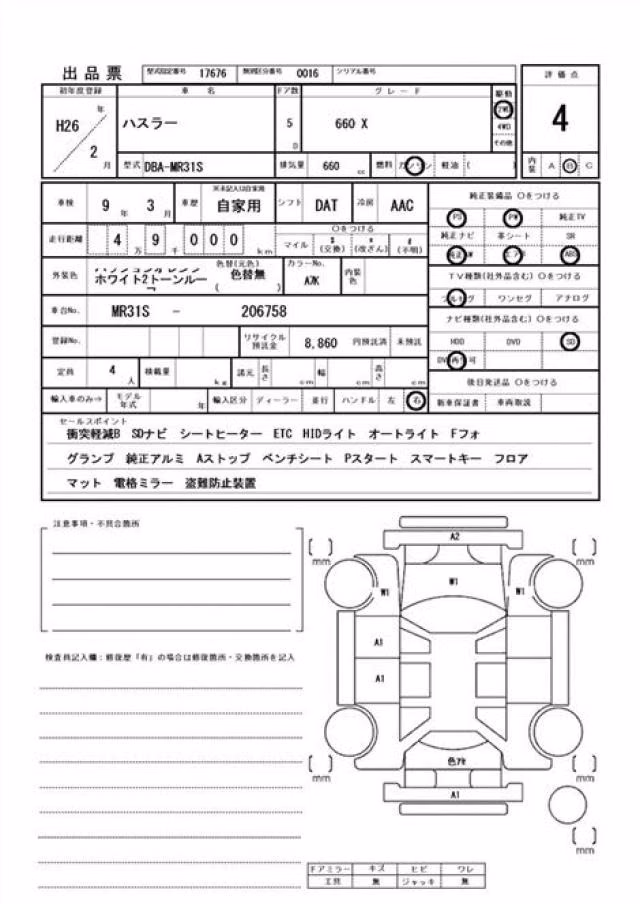 出品票 型式指定番号 17676 類別区分番号 0016 シリアル番号
評価点
初年度登録 車名 ドア数 グレード 駆動
H26 年 2 月 ハスラー 5 D 660 X 2WD 4WD その他
4
型式 DBA-MR31S 排気量 660 cc 燃料 ガソリン 軽油 ( )
内装 A B C
車検 9 年 3 月 車歴 ※未記入は自家用 自家用 シフト DAT 冷房 AAC
純正装備品 〇をつける
PS PW 純正TV
走行距離 4 万 9 千 0 0 0 km
〇をつける
マイル $ (交換) * (改ざん) # (不明)
純正ナビ 革シート SR
純正AW エアB ABS
外装色 ホワイト2トーンルー 色替(元色) 色替無 ( ) カラーNo. 内装色
TV種類(社外品含む) 〇をつける
フルセグ ワンセグ アナログ
車台No. MR31S - 206758
ナビ種類(社外品含む) 〇をつける
登録No. リサイクル預託金 8,860 円預託済 未預託
HDD DVD SD
DVD再生可
定員 4 人 積載量 kg 諸元 長さ cm 幅 cm 高さ cm
後日発送品 〇をつける
輸入車のみ⇒ モデル年式 年 輸入区分 ディーラー 並行 ハンドル 左 右
新車保証書 車両取説
セールスポイント
衝突軽減B SDナビ シートヒーター ETC HIDライト オートライト Fフォ
グランプ 純正アルミ Aストップ ベンチシート Pスタート スマートキー フロア
マット 電格ミラー 盗難防止装置
注意事項・不具合箇所
検査員記入欄：修復歴「有」の場合は修復箇所・交換箇所を記入
A2
mm mm
W1
W1 W1
A1
A1
色アセ
mm mm
A1
mm
Fアミラー キズ ヒビ ワレ
工具 無 ジャッキ 無